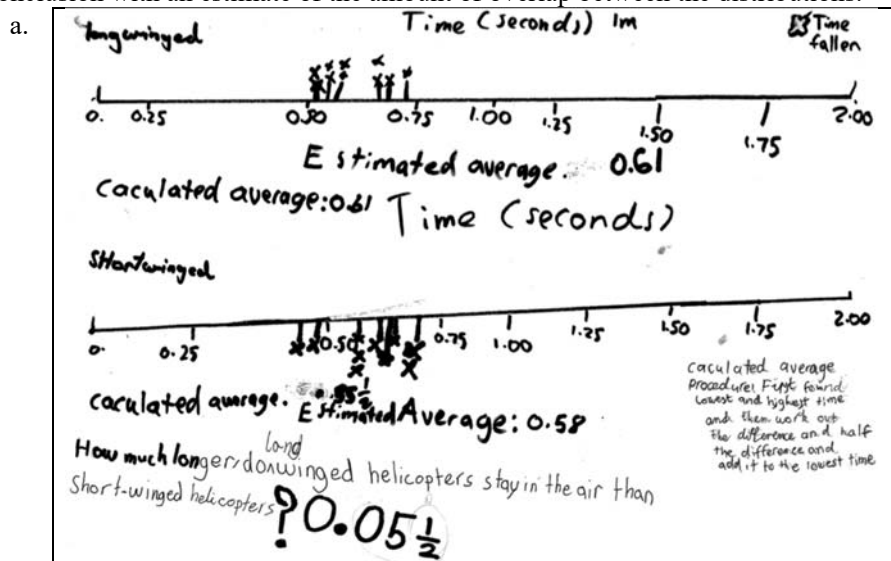 conclusion with an estimate of the amount of overlap between the distributions.
a.
longwinged
Time (seconds) 1m
Time
fallen
0. 0.25 0.50 0.75 1.00 1.25 1.50 1.75 2.00
Estimated average. 0.61
caculated average: 0.61
Time (seconds)
SHortwinged
0. 0.25 0.50 0.75 1.00 1.25 1.50 1.75 2.00
caculated average. .55½
Estimated Average: 0.58
caculated average
Procedure: First found
Lowest and highest time
and them work out
the difference and half
the difference and
add it to the lowest time
How much longer do long winged helicopters stay in the air than
Short-winged helicopters ? 0.05½